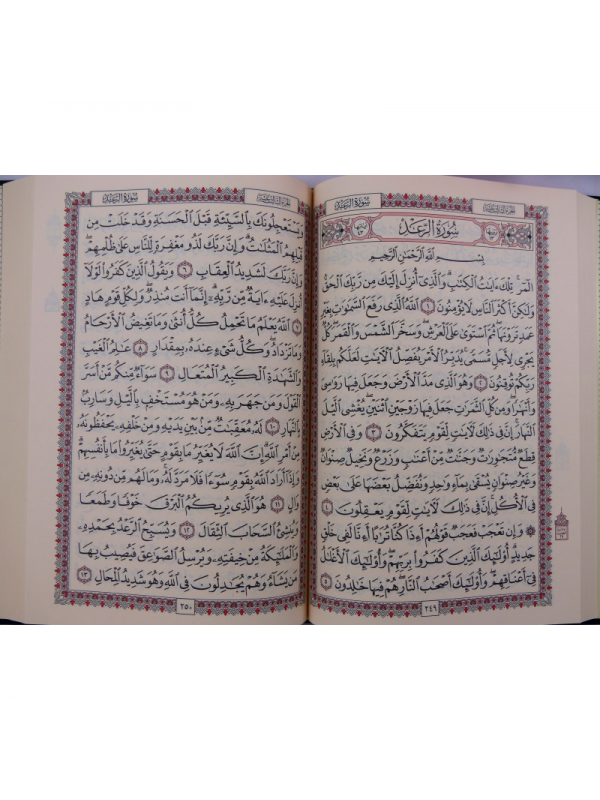 سورة الرعد
سورة الرعد
بسم الله الرحمن الرحيم
المر تلك ءايت الكتب والذى أنزل إليك من ربك الحق
ولكن أكثر الناس لا يؤمنون ١ الله الذى رفع السموت بغير
عمد ترونها ثم استوى على العرش وسخر الشمس والقمر كل
يجرى لأجل مسمى يدبر الأمر يفصل الأيت لعلكم بلقاء
ربكم توقنون ٢ وهو الذى مد الأرض وجعل فيها روسى
وأنهرا ومن كل الثمرت جعل فيها زوجين اثنين يغشى اليل
النهار إن فى ذلك لأيت لقوم يتفكرون ٣ وفى الأرض
قطع متجورت وجنت من أعنب وزرع ونخيل صنوان
وغير صنوان يسقى بماء وحد ونفضل بعضها على بعض
فى الأكل إن فى ذلك لأيت لقوم يعقلون ٤
وإن تعجب فعجب قولهم أءذا كنا تربا أءنا لفى خلق
جديد أولئك الذين كفروا بربهم وأولئك الأغلل
فى أعناقهم وأولئك أصحب النار هم فيها خلدون ٥
٢٤٩
سورة الرعد
ويستعجلونك بالسيئة قبل الحسنة وقد خلت من
قبلهم المثلت وإن ربك لذو مغفرة للناس على ظلمهم
وإن ربك لشديد العقاب ٦ ويقول الذين كفروا لولا
أنزل عليه ءاية من ربه إنما أنت منذر ولكل قوم هاد
٧ الله يعلم ما تحمل كل أنثى وما تغيض الأرحام
وما تزداد وكل شىء عنده بمقدار ٨ علم الغيب
والشهدة الكبير المتعال ٩ سواء منكم من أسر
القول ومن جهر به ومن هو مستخف باليل وسارب
بالنهار ١٠ له معقبت من بين يديه ومن خلفه يحفظونه
من أمر الله إن الله لا يغير ما بقوم حتى يغيروا ما بأنفسهم
وإذا أراد الله بقوم سوءا فلا مرد له وما لهم من دونه من
وال ١١ هو الذى يريكم البرق خوفا وطمعا
وينشئ السحاب الثقال ١٢ ويسبح الرعد بحمده
والملئكة من خيفته ويرسل الصوعق فيصيب بها
من يشاء وهم يجدلون فى الله وهو شديد المحال ١٣
٢٥٠